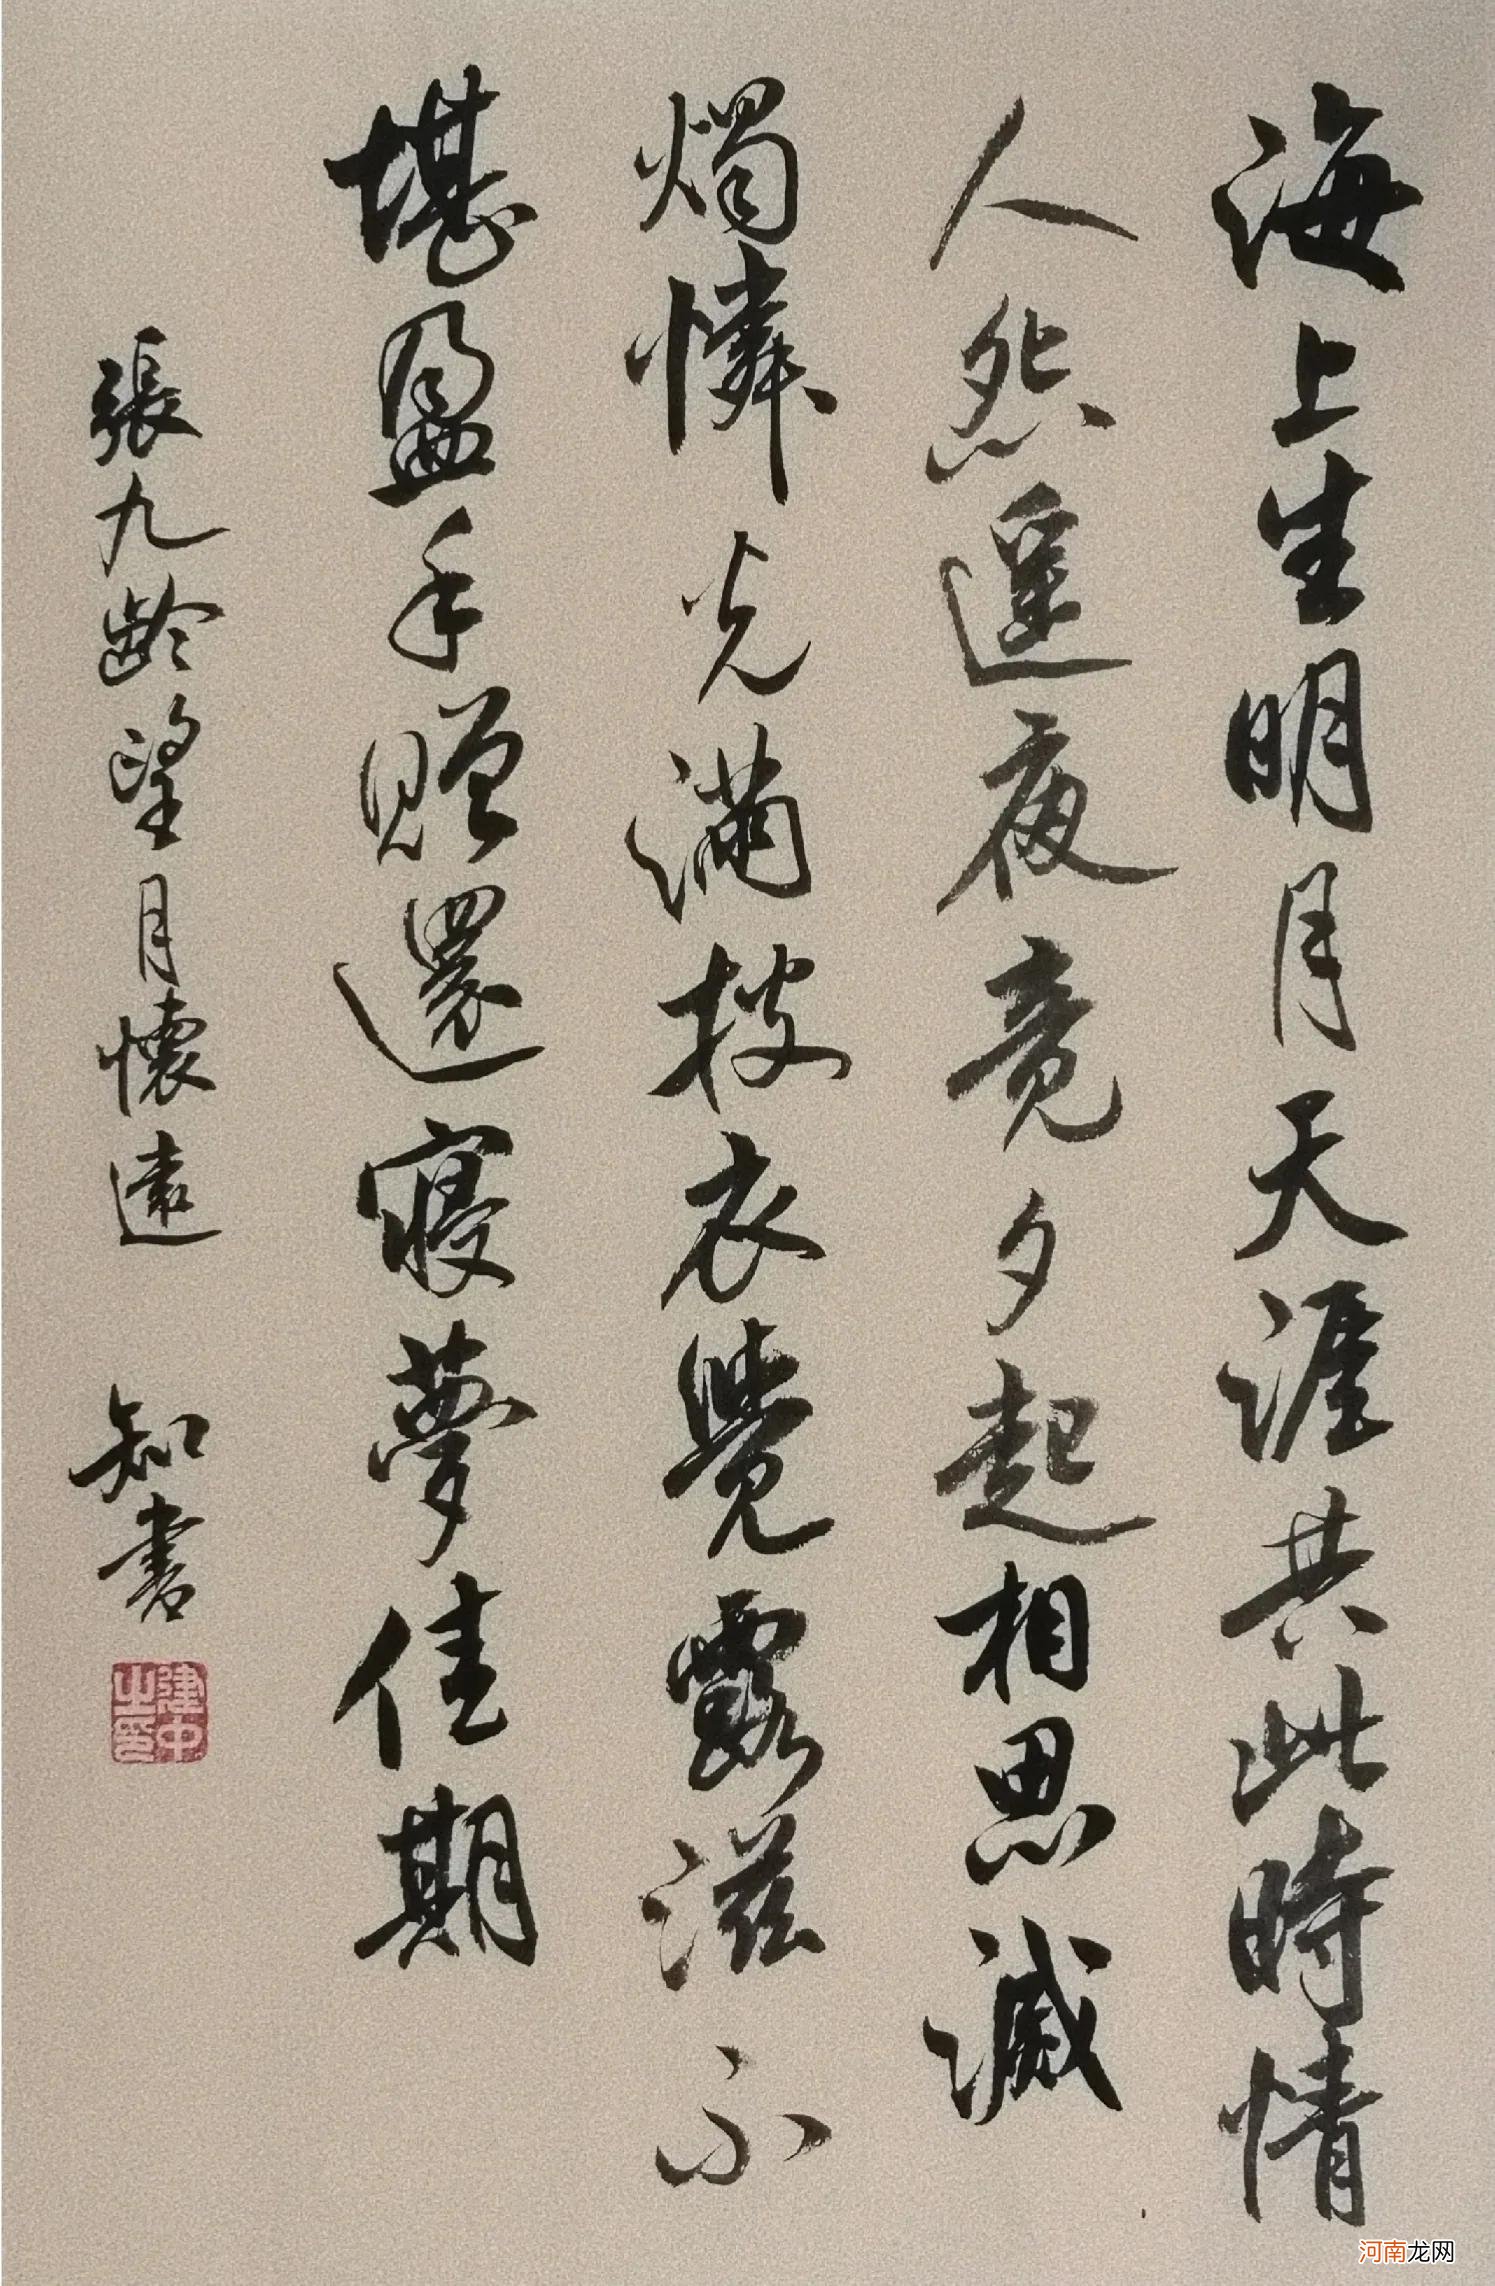 海上生明月天涯共此時情
人怨遥夜竟夕起相思滅
燭憐光滿披衣覺露滋不
堪盈手贈還寢夢佳期
張九齡望月懷遠
知書
建中之印
河南龙网